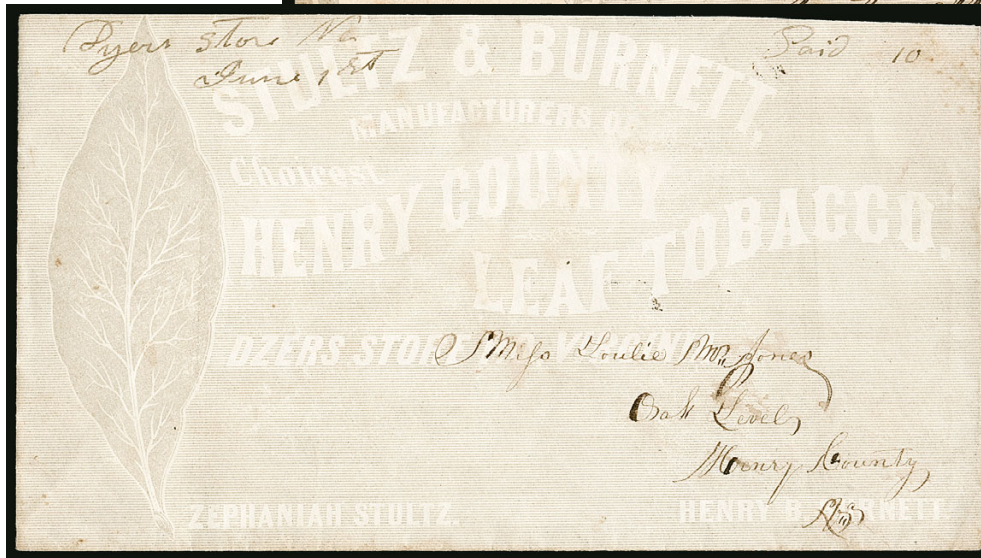 Dyers Store Va
June 1st
Paid 10
STULTZ & BURNETT,
MANUFACTURERS OF
Choicest
HENRY COUNTY
LEAF TOBACCO.
DZERS STORE, VIRGINIA
Miss Loulie M. Jones
Oak Level,
Henry County,
Va
ZEPHANIAH STULTZ.
HENRY B. BURNETT.